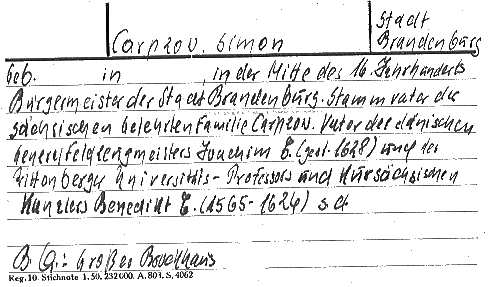 Stadt
Carpzov, Simon Brandenburg
Geb. in , in der Mitte des 16. Jahrhunderts
Bürgermeister der Stadt Brandenburg. Stammvater der
sächsischen Gelehrtenfamilie Carpzov. Vater des dänischen
Generalfeldzeugmeisters Joachim C. (gest. 1628) und des
Wittenberger Universitäts-Professors und Kursächsischen
Kanzlers Benedikt C. (1565-1624) s.d.
B. Q.: Großer Brockhaus
Reg. 10. Stichnote 1. 50. 232000. A. 803. S. 4062